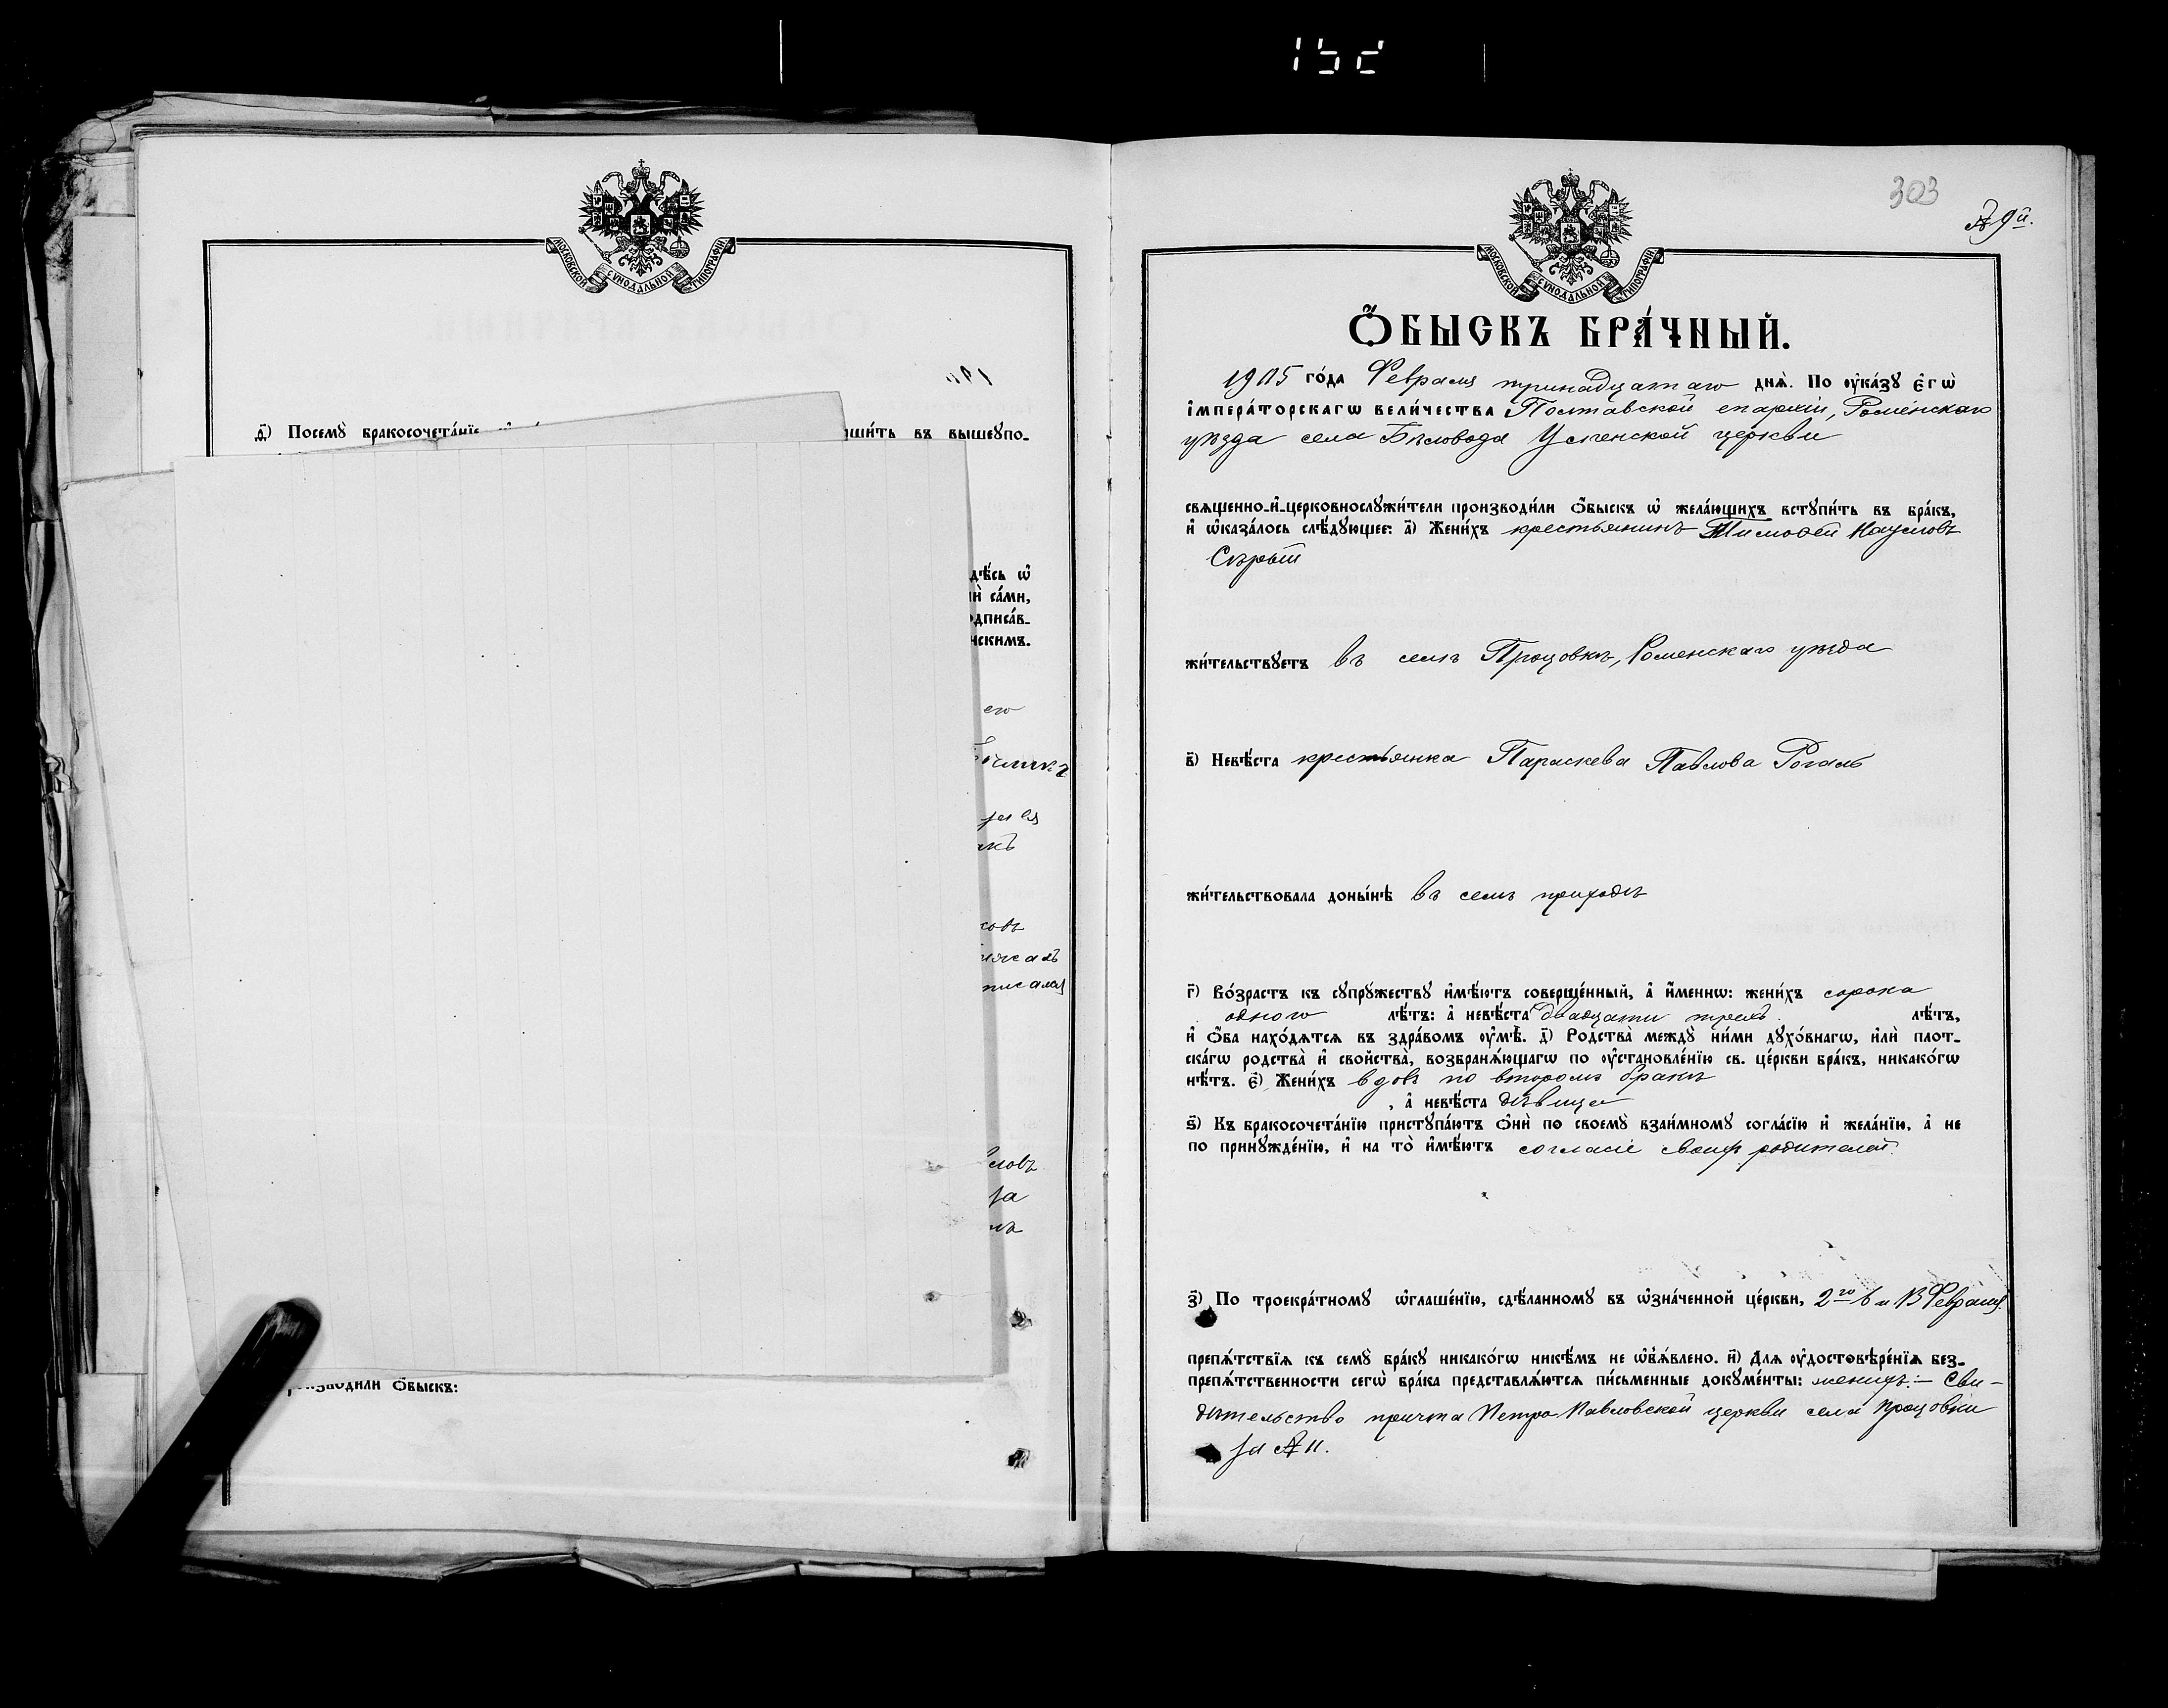 МОСКОВСКОЙ СѴНОДАЛЬНОЙ ТИПОГРАФІИ
д҃) Посемꙋ̀ бракосочета́нїе
ши́ть въ вышеꙋпо-
дѣ́сь ѡ҆
и҆ са́ми,
одписа́в-
нскимъ.
его
писался
ловъ
за
производили Ѻ҆́быскъ:
303
№ 9й.
МОСКОВСКОЙ СѴНОДАЛЬНОЙ ТИПОГРАФІИ
Ѻ҆́БЫСКЪ БРА́ЧНЫЙ.
1905 го́да Февраля тринадцатаго днѧ̀. По ᲂу҆ка́зꙋ Є҆гѡ̀
І҆мпера́торскагѡ вели́чества Полтавской епархіи, Роменскаго
уѣзда села Бѣловода Успенской церкви
свѧщенно-и҆-церковнослꙋжи́тели производи́ли ѻ҆́быскъ ѡ҆ жела́ющихъ встꙋпи́ть въ бра́къ,
и҆ ѡ҆каза́лось слѣ́дꙋющее: а҃) Жени́хъ крестьянинъ Тимоѳей Наумовъ
Сѣрый
жи́тельствꙋетъ въ селѣ Процовкѣ, Роменскаго уѣзда
в҃) Невѣ́ста крестьянка Параскева Павлова Рогаль
жи́тельствовала доны́нѣ въ семъ приходѣ
г҃) Во́зрастъ къ сꙋпрꙋжествꙋ и҆мѣ́ютъ соверше́нный, а҆ и҆́меннѡ: жени́хъ сорока
одного лѣ́тъ: а҆ невѣ́ста двадцати трехъ лѣ́тъ,
и҆ ѻ҆́ба нахо́дѧтсѧ въ здра́вомъ ᲂу҆мѣ̀. д҃) Родства̀ междꙋ̀ ни́ми дꙋхо́внагѡ, и҆лѝ плот-
ска́гѡ родства̀ и҆ свойства̀, возбранѧ́ющагѡ по ᲂу҆становле́нїю св. це́ркви бра́къ, никако́гѡ
нѣ́тъ. є҃) Жени́хъ вдовъ по второмъ бракѣ
, а҆ невѣ́ста дѣвица
ѕ҃) Къ бракосочета́нїю пристꙋпа́ютъ ѻ҆нѝ по своемꙋ̀ взаи́мномꙋ согла́сїю и҆ жела́нїю, а҆ не
по принꙋжде́нїю, и҆ на то̀ и҆мѣ́ютъ согласіе своихъ родителей.
з҃) По троекра́тномꙋ ѡ҆глаше́нїю, сдѣ́ланномꙋ въ ѡ҆зна́ченной це́ркви, 2го 6 и 13 Февраля
препѧ́тствїѧ къ семꙋ̀ бра́кꙋ никако́гѡ никѣ́мъ не ѡ҆б̾ѧ́влено. и҃) Длѧ ᲂу҆достовѣре́нїѧ без-
препѧ́тственности сегѡ̀ бра́ка представлѧ́ютсѧ пи́сьменные докꙋме́нты: женихъ:- Сви-
дѣтельство причта Петро Павловской церкви села Процовки
за № 11.